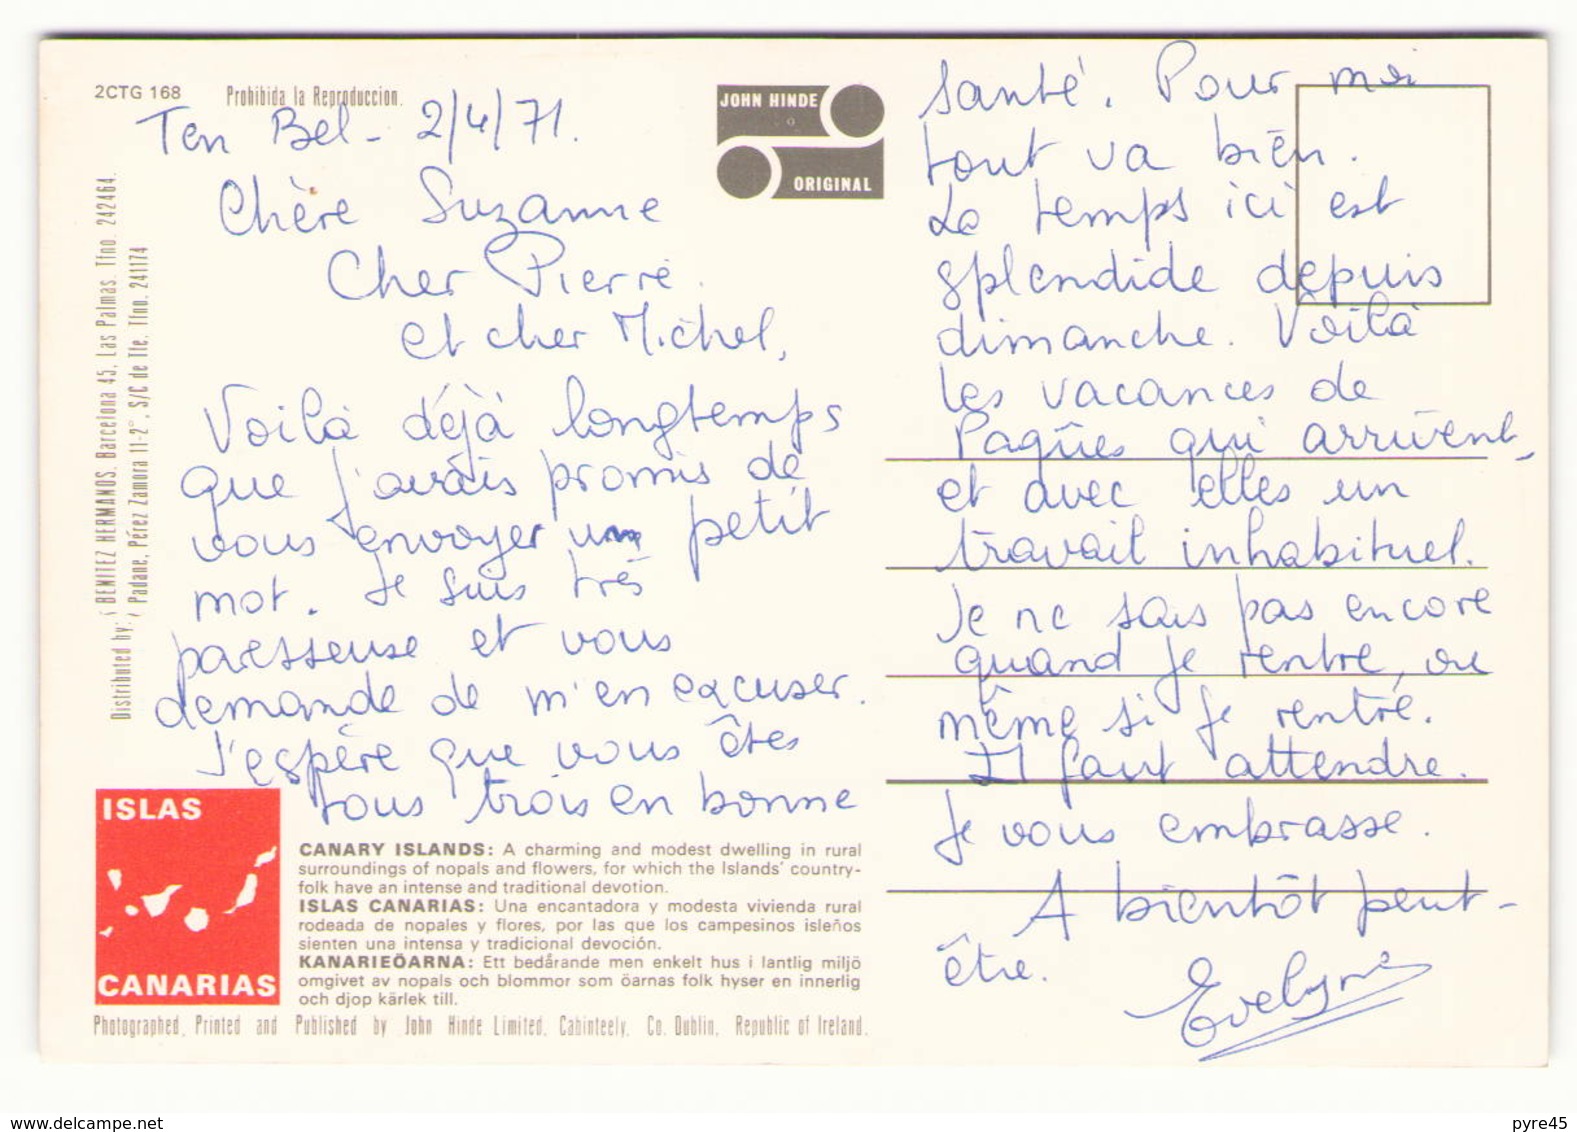 2CTG 168
Prohibida la Reproduccion.
JOHN HINDE
ORIGINAL
Ten Bel - 2/4/71.
Chère Suzanne
Cher Pierre
et cher Michel,
Voilà déjà longtemps
que j'avais promis de
vous envoyer un petit
mot. Je suis très
paresseuse et vous
demande de m'en excuser.
J'espère que vous êtes
tous trois en bonne
santé. Pour moi
tout va bien.
Le temps ici est
splendide depuis
dimanche. Voilà
les vacances de
Paqûes qui arrivent,
et avec elles un
travail inhabituel.
Je ne sais pas encore
quand je rentre, ou
même si je rentre.
Il faut attendre.
Je vous embrasse.
A bientôt peut-
être.
Evelyne
Distributed by: BENITEZ HERMANOS. Barcelona 45, Las Palmas. Tfno. 242464.
Padane, Pérez Zamora 11-2°, S/C de Tfe. Tfno. 241174
ISLAS
CANARIAS
CANARY ISLANDS: A charming and modest dwelling in rural
surroundings of nopals and flowers, for which the Islands' country-
folk have an intense and traditional devotion.
ISLAS CANARIAS: Una encantadora y modesta vivienda rural
rodeada de nopales y flores, por las que los campesinos isleños
sienten una intensa y tradicional devoción.
KANARIEÖARNA: Ett bedårande men enkelt hus i lantlig miljö
omgivet av nopals och blommor som öarnas folk hyser en innerlig
och djop kärlek till.
Photographed, Printed and Published by John Hinde Limited, Cabinteely, Co. Dublin, Republic of Ireland.
www.delcampe.net
pyre45